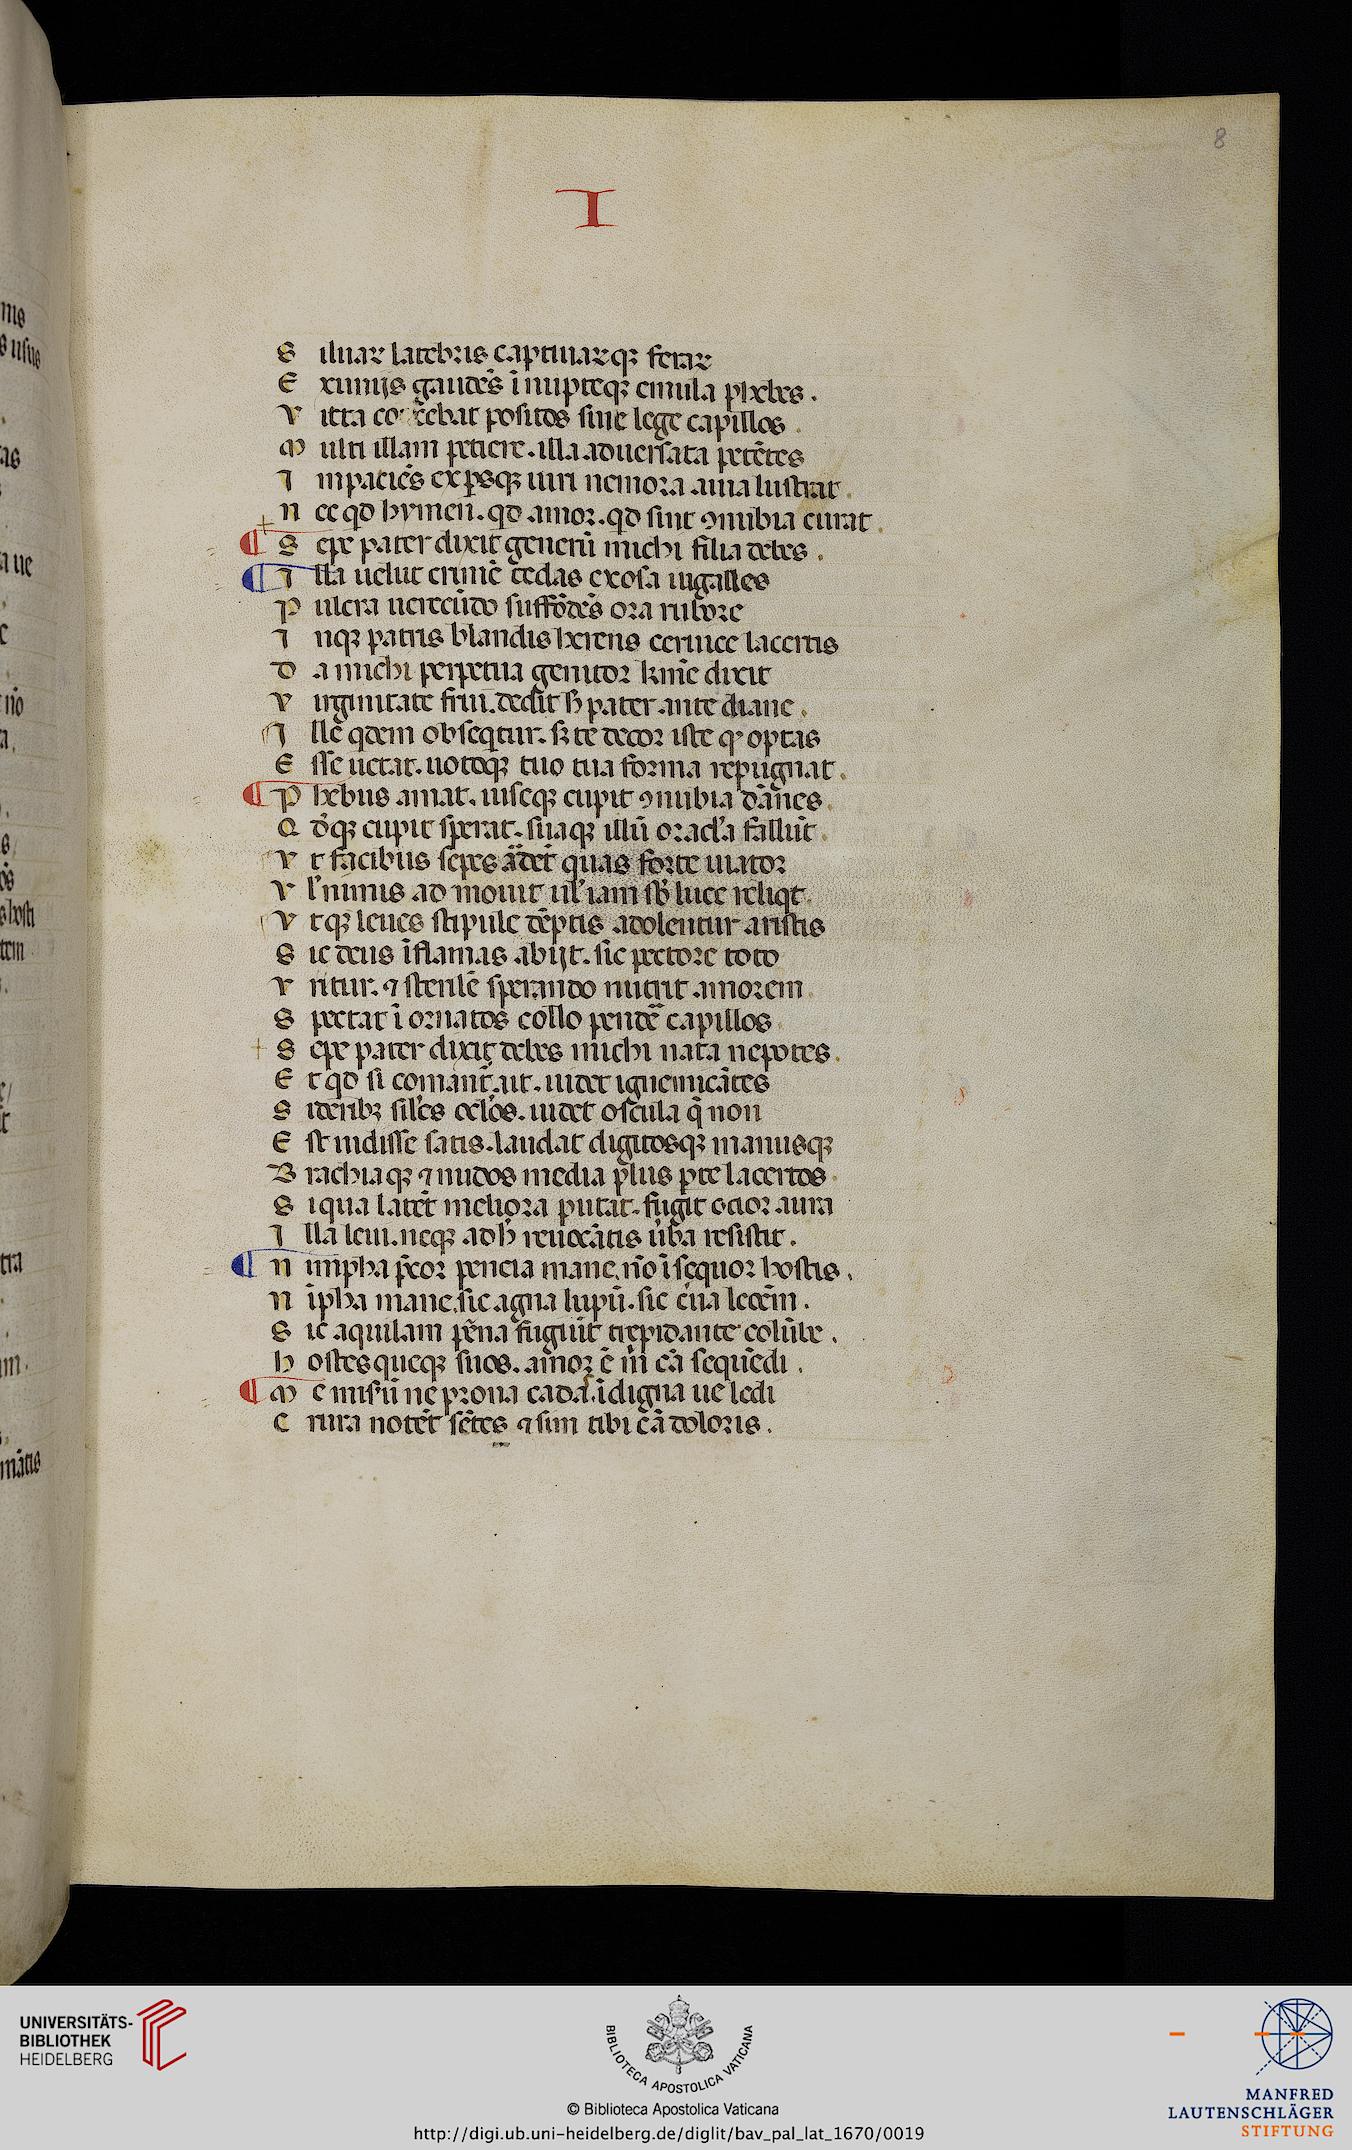 8
I
S iluaꝝ latebris captiuaꝝqꝫ feraꝝ
E xuuijs gaudēs īnupteqꝫ emula phebes .
V itta co cebat positos sine lege capillos .
M ulti illam petiere . illa aduersata petētes
I npaciēs expersqꝫ uiri nemora auia lustrat .
N ec qd hymen . qd amor . qd sint ꝯnubia curat .
¶ S epe pater dixit generū michi filia debes .
¶ I lla uelut crimē tedas exosa iugalles
P ulcra uerecūdo suffōdēs ora rubore
I nqꝫ patris blandis herens ceruice lacertis
D a michi perpetua genitor kīme dixit
V irginitate frui . dedit h̄ pater ante diane .
I llē qdem obseqtur . sꝫ te decor iste qͦ optas
E sse uetat . uotoqꝫ tuo tua forma repugnat .
¶ P hebus amat . uiseqꝫ cupit ꝯnubia dānes .
Q d̄qꝫ cupit sperat . suaqꝫ illū oracl̓a fallūt .
V t facibus sepes ādēt quas forte uiator
V l̓ nimis admouit ul̓ iam sb̓ luce reliqt .
V tqꝫ leues stipule dēptis adolentur aristis
S ic deus īflamas abijt . sic pectore toto
V ritur . ⁊ sterilē sperando nutrit amorem .
S pectat īornatos collo pendē capillos .
+ S epe pater dixit debes michi nata nepotes .
E t qd si comānt̄ . ait . uidet igne micātes
S ideribꝫ sil̓es ocl̓os . uidet oscula q̄ non
E st uidisse satis . laudat digitosqꝫ manusqꝫ
B rachiaqꝫ ⁊ nudos media pl̓us pte lacertos .
S iqua latēt meliora putat . fugit ocior aura
I lla leui . neqꝫ ad h̓ reuocātis ūba resistit .
¶ N impha p̄cor peneia mane . nō īsequor hostis .
N īpha mane . sic agna lupū . sic c̓ua leoēm .
S ic aquilam pēna fugiūt trepidante colūbe .
H ostes queqꝫ suos . amor ē m̓ cā sequēdi .
¶ M e mis̓ū ne prona cadas . īdigna ue ledi
C rura notēt sētes ⁊ sim tibi cā doloris .
UNIVERSITÄTS-
BIBLIOTHEK
HEIDELBERG
BIBLIOTECA APOSTOLICA VATICANA
© Biblioteca Apostolica Vaticana
http://digi.ub.uni-heidelberg.de/diglit/bav_pal_lat_1670/0019
MANFRED
LAUTENSCHLÄGER
STIFTUNG